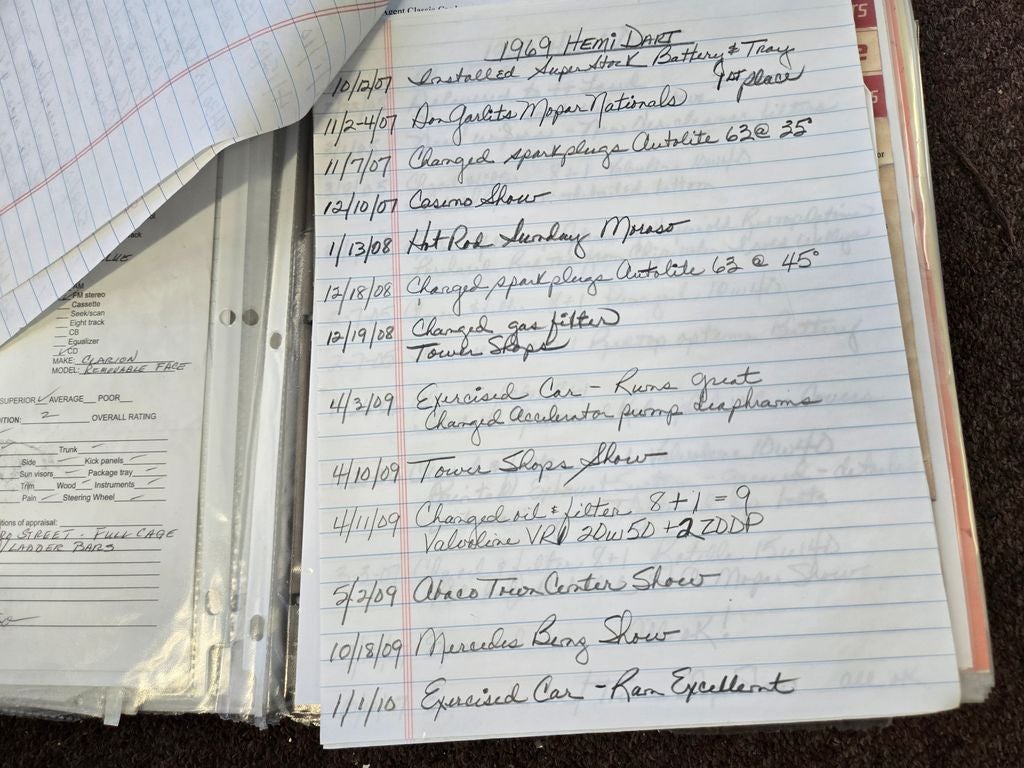 1969 HEMI DART
10/12/07 Installed Super Stock Battery & Tray
11/2-4/07 Don Garlits Mopar Nationals 1st place
11/7/07 Changed sparkplugs Autolite 63 @ 35°
12/10/07 Casino Show
1/13/08 Hot Rod Sunday Moroso
12/18/08 Changed sparkplugs Autolite 63 @ 45°
12/19/08 Changed gas filter
Tower Shops
4/3/09 Exercised Car - Runs great
Changed Accelerator pump diaphrams
4/10/09 Tower Shops Show
4/11/09 Changed oil & filter 8+1 = 9
Valvoline VR1 20w50 + 2 ZDDP
5/2/09 Abaco Town Center Show
10/18/09 Mercedes Benz Show
1/1/10 Exercised Car - Ran Excellent
AM
FM stereo
Cassette
Seek/scan
Eight track
CB
Equalizer
CD
MAKE: CLARION
MODEL: REMOVABLE FACE
SUPERIOR AVERAGE POOR
ITION: 2 OVERALL RATING
Trunk
Side Kick panels
Sun visors Package tray
Trim Wood Instruments
Pain Steering Wheel
tions of appraisal:
STREET - FULL CAGE
LADDER BARS